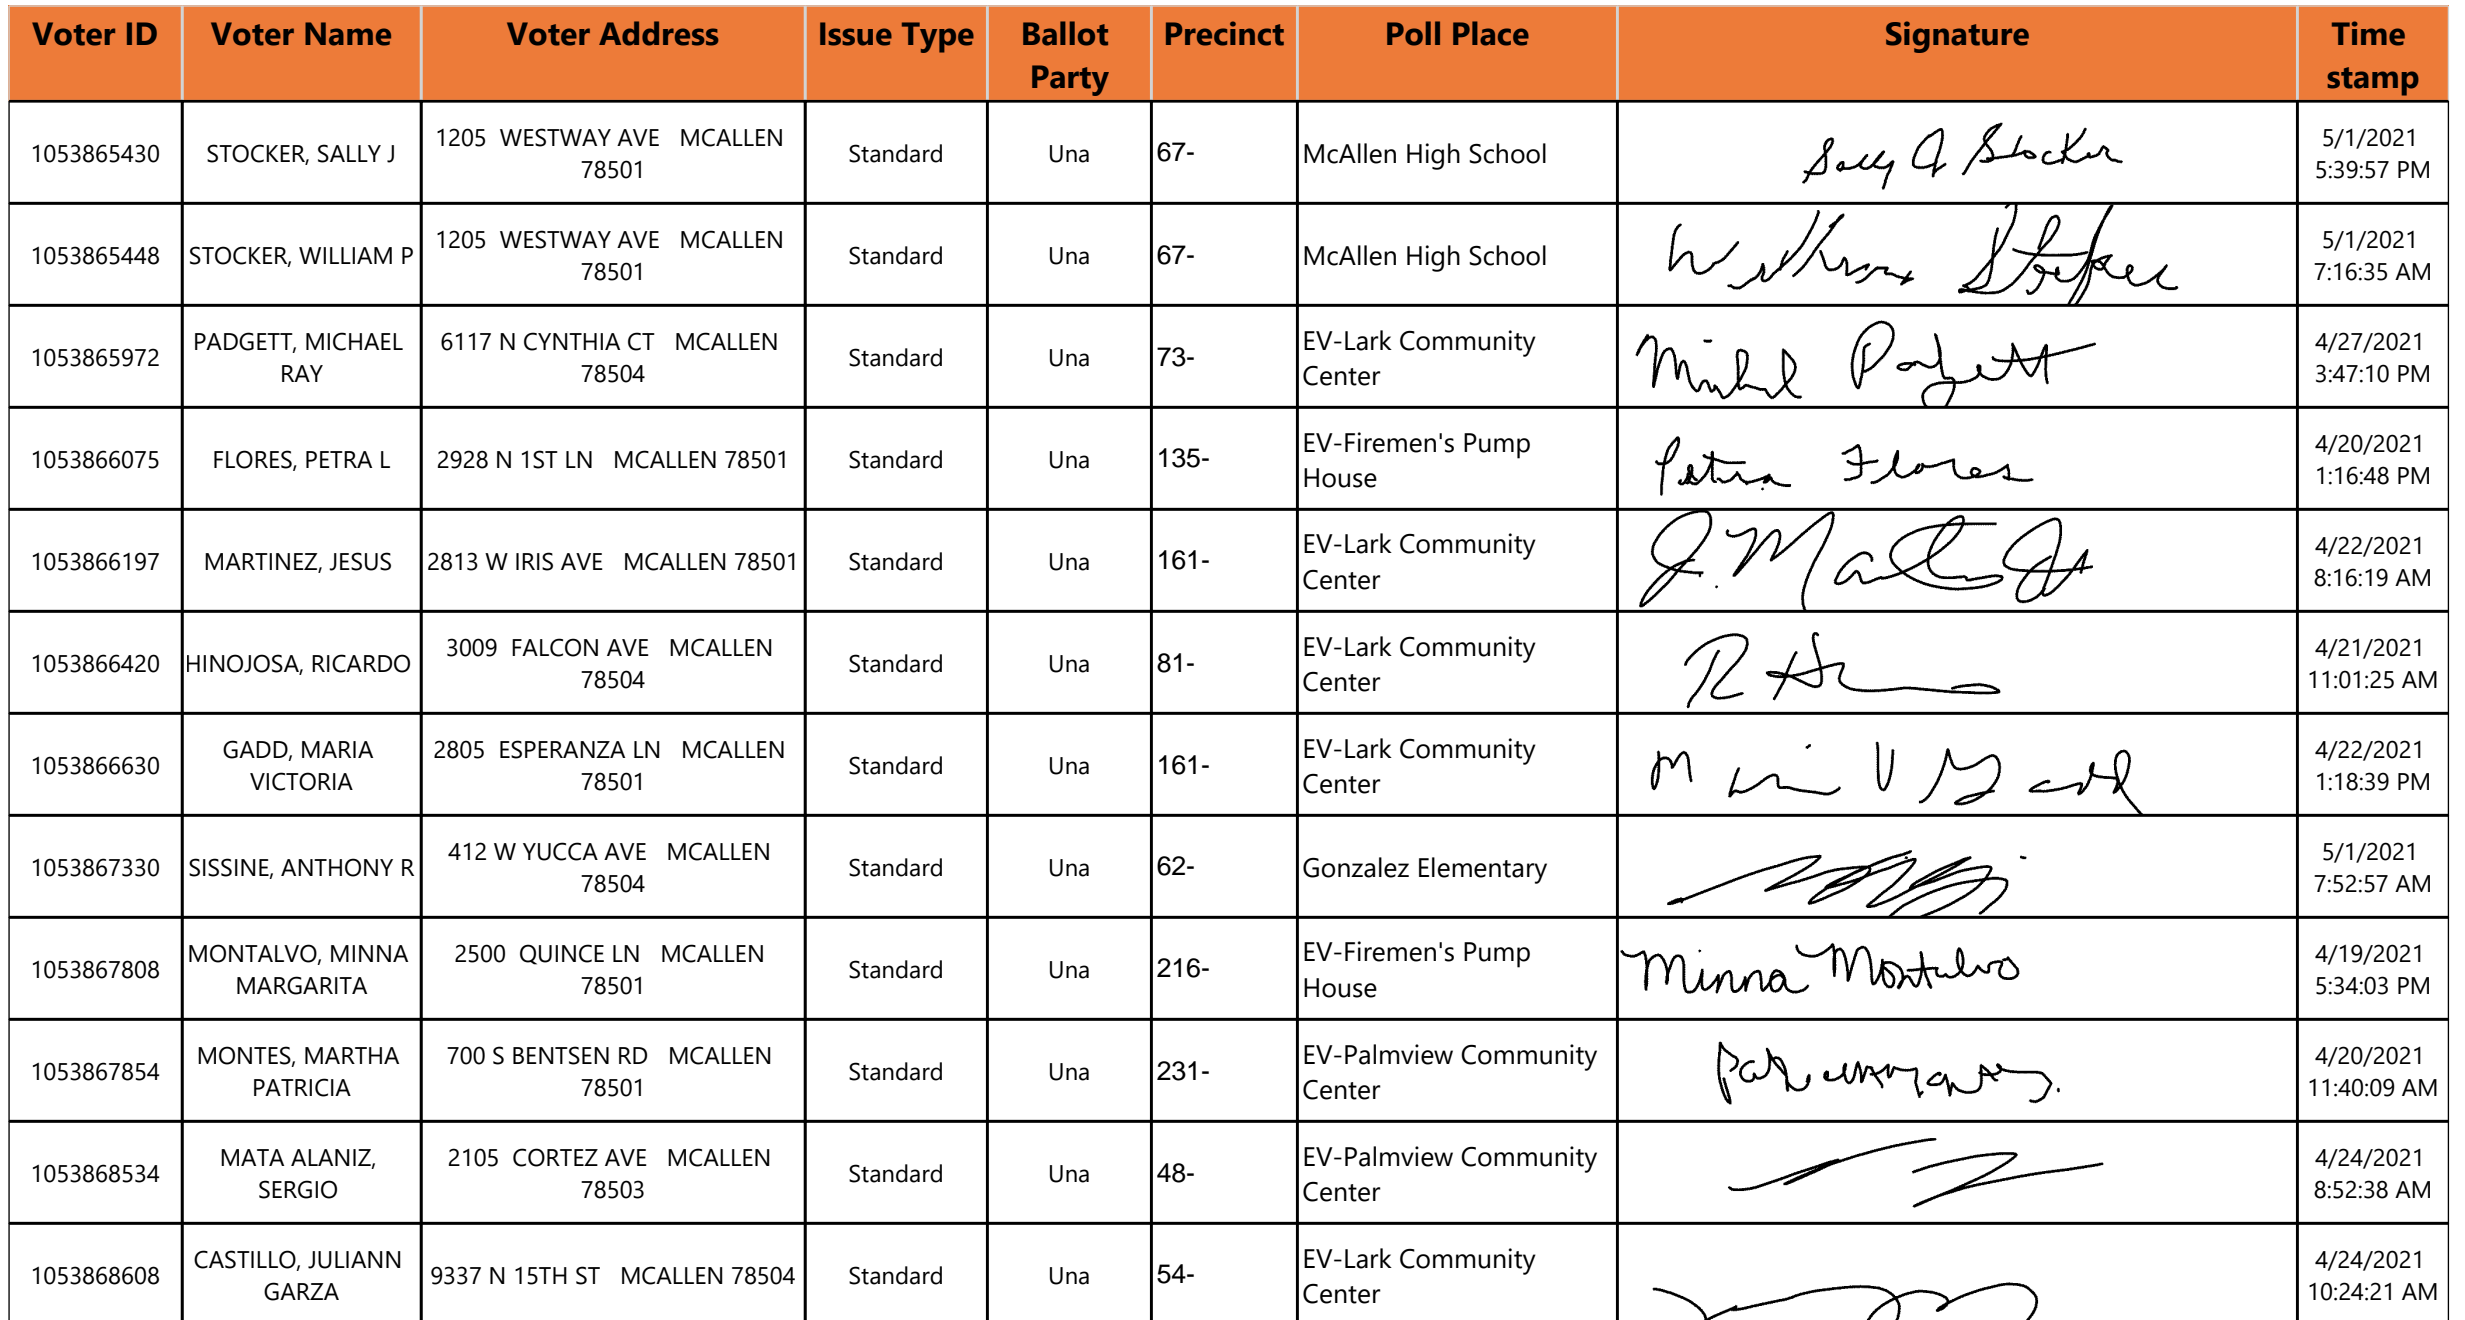 Voter ID Voter Name Voter Address Issue Type Ballot Party Precinct Poll Place Signature Time stamp
1053865430 STOCKER, SALLY J 1205 WESTWAY AVE MCALLEN 78501 Standard Una 67- McAllen High School Sally J Stocker 5/1/2021 5:39:57 PM
1053865448 STOCKER, WILLIAM P 1205 WESTWAY AVE MCALLEN 78501 Standard Una 67- McAllen High School William Stocker 5/1/2021 7:16:35 AM
1053865972 PADGETT, MICHAEL RAY 6117 N CYNTHIA CT MCALLEN 78504 Standard Una 73- EV-Lark Community Center Michael Padgett 4/27/2021 3:47:10 PM
1053866075 FLORES, PETRA L 2928 N 1ST LN MCALLEN 78501 Standard Una 135- EV-Firemen's Pump House Petra Flores 4/20/2021 1:16:48 PM
1053866197 MARTINEZ, JESUS 2813 W IRIS AVE MCALLEN 78501 Standard Una 161- EV-Lark Community Center 4/22/2021 8:16:19 AM
1053866420 HINOJOSA, RICARDO 3009 FALCON AVE MCALLEN 78504 Standard Una 81- EV-Lark Community Center 4/21/2021 11:01:25 AM
1053866630 GADD, MARIA VICTORIA 2805 ESPERANZA LN MCALLEN 78501 Standard Una 161- EV-Lark Community Center Maria V Gadd 4/22/2021 1:18:39 PM
1053867330 SISSINE, ANTHONY R 412 W YUCCA AVE MCALLEN 78504 Standard Una 62- Gonzalez Elementary 5/1/2021 7:52:57 AM
1053867808 MONTALVO, MINNA MARGARITA 2500 QUINCE LN MCALLEN 78501 Standard Una 216- EV-Firemen's Pump House Minna Montalvo 4/19/2021 5:34:03 PM
1053867854 MONTES, MARTHA PATRICIA 700 S BENTSEN RD MCALLEN 78501 Standard Una 231- EV-Palmview Community Center 4/20/2021 11:40:09 AM
1053868534 MATA ALANIZ, SERGIO 2105 CORTEZ AVE MCALLEN 78503 Standard Una 48- EV-Palmview Community Center 4/24/2021 8:52:38 AM
1053868608 CASTILLO, JULIANN GARZA 9337 N 15TH ST MCALLEN 78504 Standard Una 54- EV-Lark Community Center 4/24/2021 10:24:21 AM